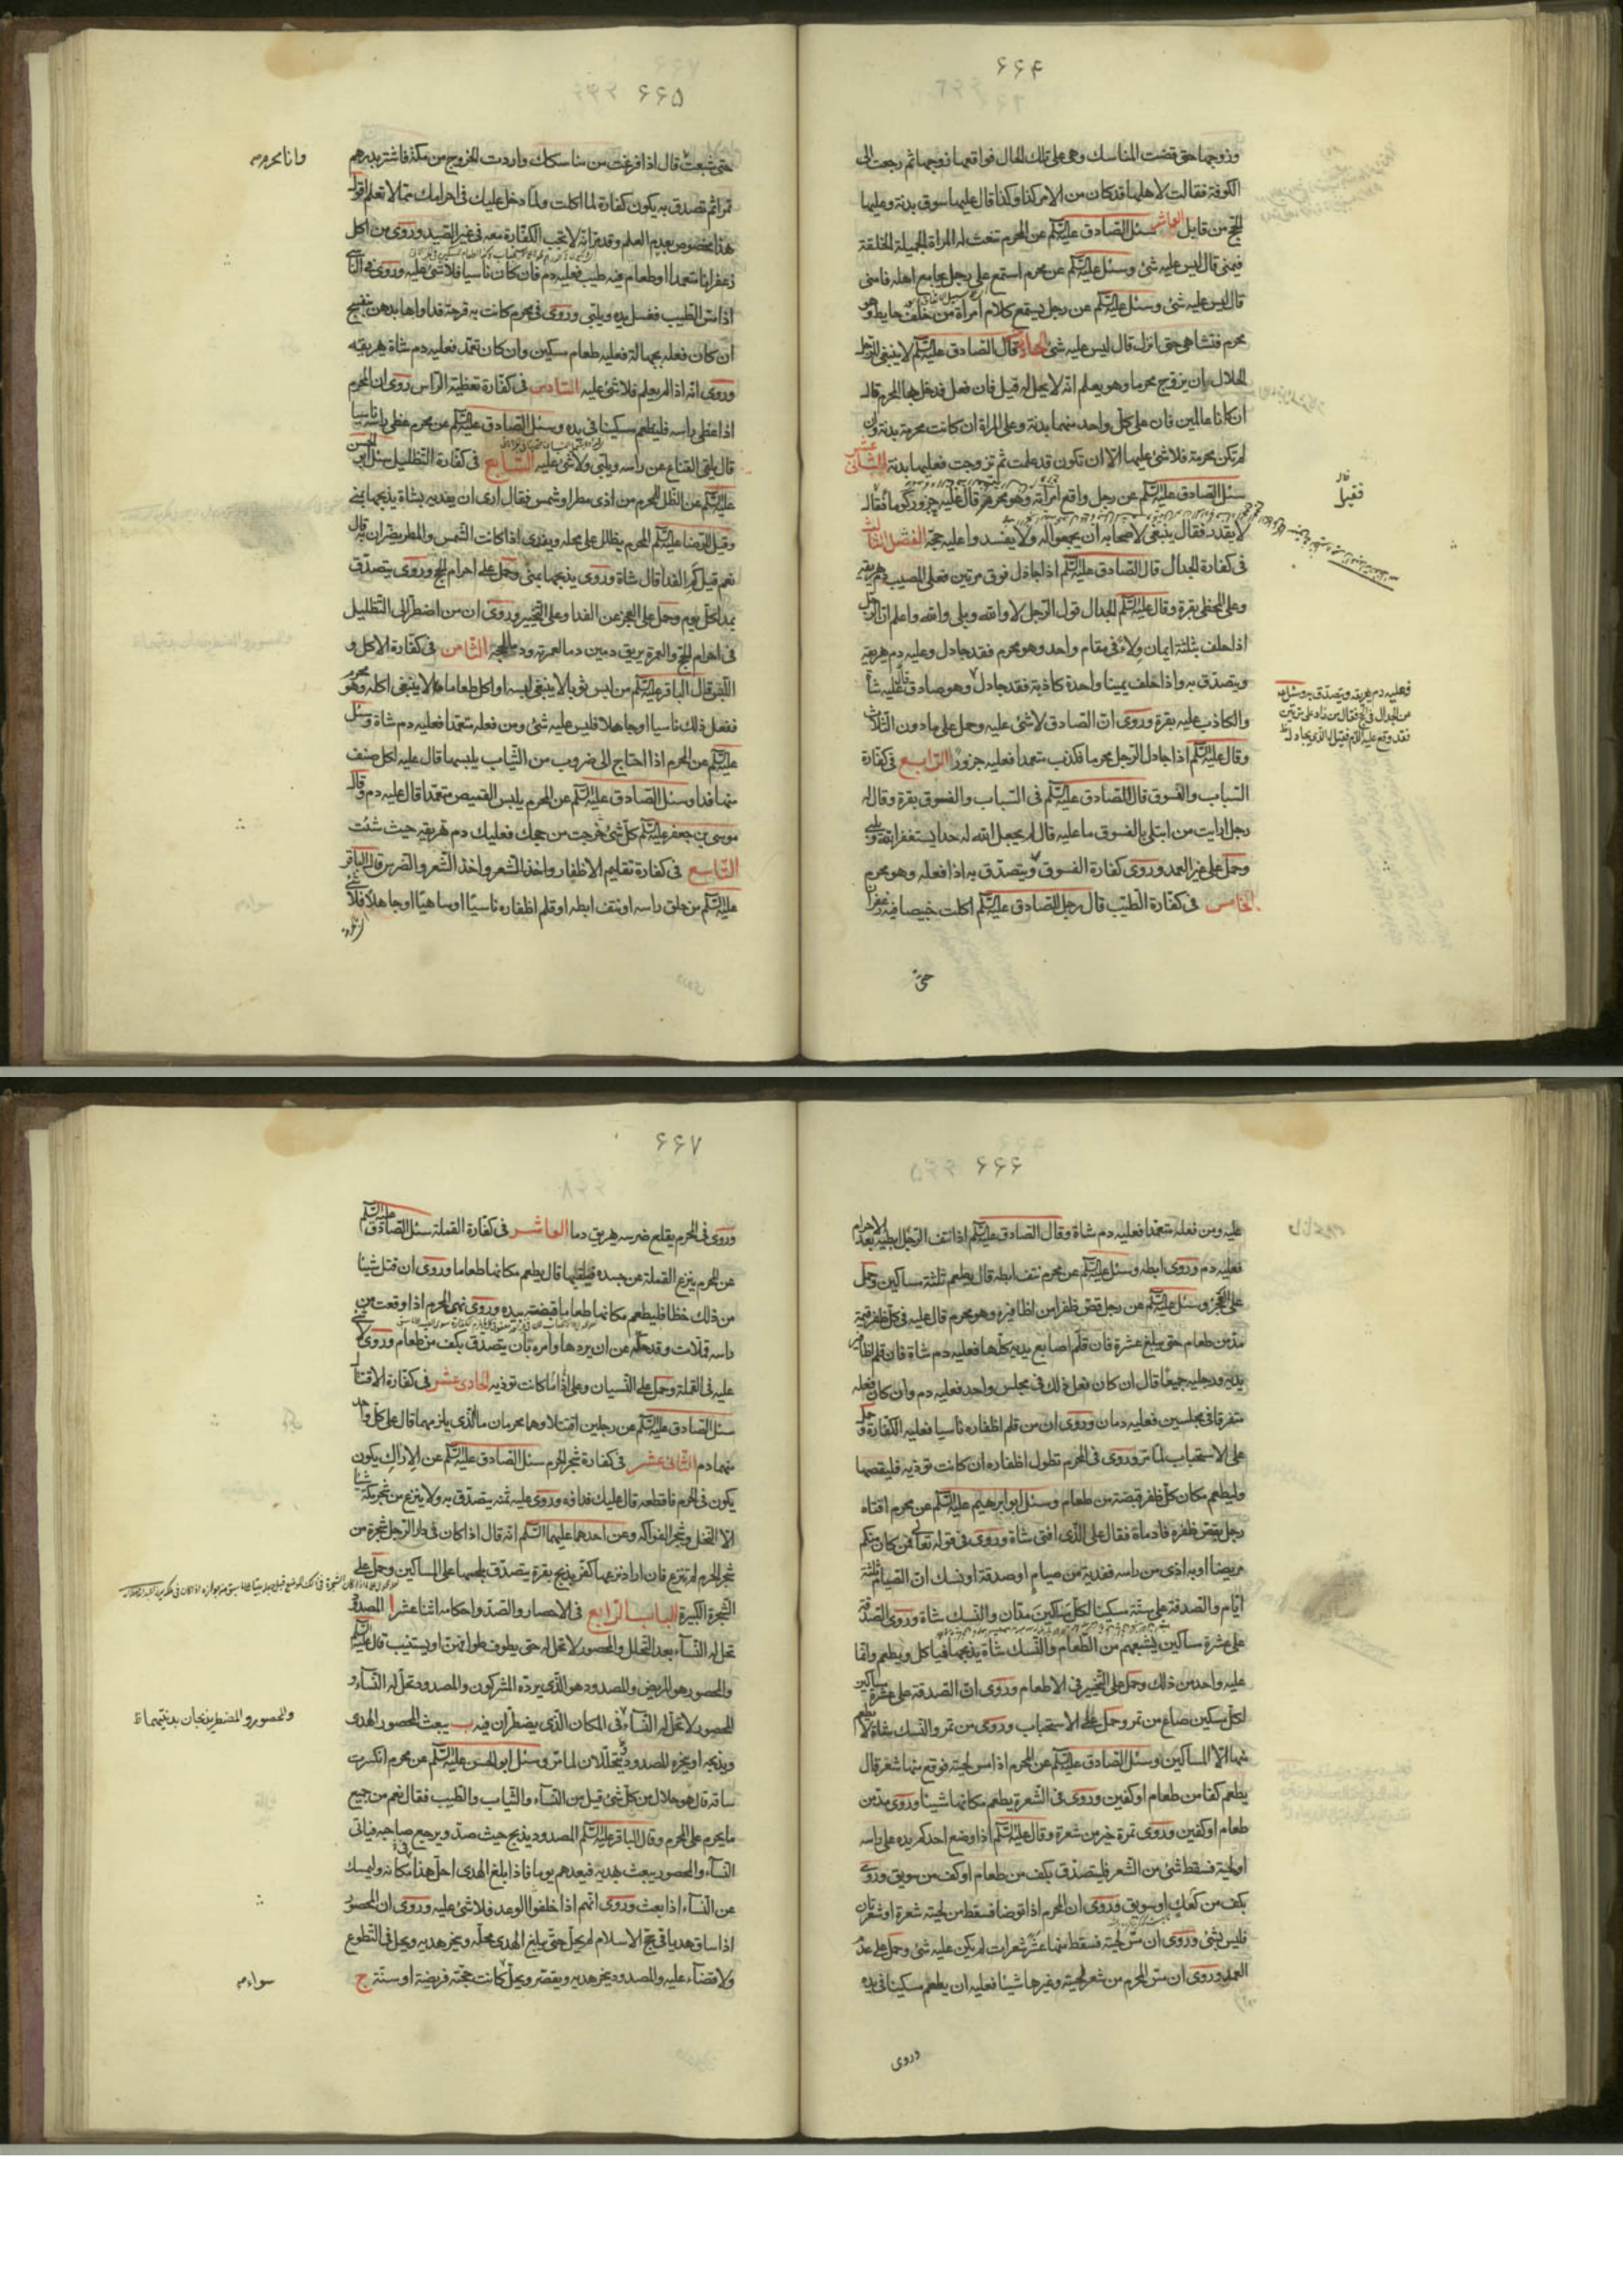 ۶۶۴
وزوجها حتى قضت المناسك وهي على تلك الحال فواقعها زوجها ثم رجعت الى
الكوفة فقالت لاهلها قد كان من الامر كذا وكذا قال عليها سوق بدنة وعليها
الحج من قابل العاشر سئل الصادق عليه السلم عن المحرم تنعت له المراة الجميلة الخلقة
فيمنى قال ليس عليه شئ وسئل عليه السلم عن محرم استمع على رجل يجامع اهله فامنى
قال ليس عليه شئ وسئل عليه السلم عن رجل يسمع كلام امراة من خلف حايط وهو
محرم فتشاهى حتى انزل قال ليس عليه شئ الحادى عشر قال الصادق عليه السلم لا ينبغى للرجل
الحلال ان يزوج محرما وهو يعلم انه لا يحل له قيل فان فعل فدخل بها المحرم قال
ان كانا عالمين فان على كل واحد منهما بدنة وعلى المراة ان كانت محرمة بدنة وان
لم تكن محرمة فلا شئ عليها الا ان تكون قد علمت ثم تزوجت فعليها بدنة الثانى
سئل الصادق عليه السلم عن رجل واقع امراته وهو محرم قال عليه جزور كوماء فقال
لا يقدر فقال ينبغى لاصحابه ان يجمعوا له ولا يفسدوا عليه حجه الفصل الثالث
فى كفارة الجدال قال الصادق عليه السلم اذا جادل فوق مرتين فعلى المصيب دم يهريقه
وعلى المخطى بقرة وقال عليه السلم الجدال قول الرجل لا والله وبلى والله واعلم ان الرجل
اذا حلف بثلثة ايمان ولاء فى مقام واحد وهو محرم فقد جادل وعليه دم يهريقه
ويتصدق به واذا حلف يمينا واحدة كاذبة فقد جادل وهو صادق عليه شاة
والكاذب عليه بقرة وروى ان الصادق لا شئ عليه وحمل على ما دون الثلاث
وقال عليه السلم اذا جادل الرجل محرما فكذب متعمدا فعليه جزور الرابع فى كفارة
السباب والفسوق قال الصادق عليه السلم فى السباب والفسوق بقرة وقال له
رجل ارايت من ابتلى بالفسوق ما عليه قال لم يجعل الله له حدا يستغفر الله ويلبى
وحمل على غير العمد وروى كفارة الفسوق يتصدق به اذا فعله وهو محرم
الخامس فى كفارة الطيب قال رجل للصادق عليه السلم اكلت خبيصا فيه زعفران
حتى
قال
فقيل
فعليه دم يهريقه ويتصدق به وسئل
عن الجدال فى الحج فقال من زاد على مرتين
فقد وقع عليه الدم فقيل له الذى يجادل
۶۶۵
حتى شبعت قال اذا فرغت من مناسكك واردت الخروج من مكة فاشتر بدرهم
تمرا ثم تصدق به يكون كفارة لما اكلت ولما دخل عليك فى احرامك مما لا تعلم اقول
هذا مخصوص بعدم العلم وقد مر انه لا تجب الكفارة معه فى غير الصيد وروى من اكل
زعفرانا متعمدا او طعام فيه طيب فعليه دم فان كان ناسيا فلا شئ عليه وروى فى الناسى
اذا مس الطيب فغسل يده ويلبى وروى فى محرم كانت به قرحة فداواها بدهن بنفسج
ان كان فعله بجهالة فعليه طعام مسكين وان كان تعمد فعليه دم شاة يهريقه
وروى انه اذا لم يعلم فلا شئ عليه السادس فى كفارة تغطية الراس روى ان المحرم
اذا غطى راسه فليطعم مسكينا فى يده وسئل الصادق عليه السلم عن محرم غطى راسه ناسيا
قال يلقى القناع عن راسه ويلبى ولا شئ عليه السابع فى كفارة التظليل سئل ابو الحسن
عليه السلم عن الظل للمحرم من اذى مطر او شمس فقال ارى ان يفديه بشاة يذبحها بمنى
وقيل للرضا عليه السلم المحرم يظلل على محمله ويفدى اذا كانت الشمس والمطر يضران به قال
نعم قيل كم الفدا قال شاة وروى يذبحها بمنى وحمل على احرام الحج وروى يتصدق
بمد لكل يوم وحمل على العجز عن الفدا وعلى التخيير وروى ان من اضطر الى التظليل
فى احرام الحج والعمرة يريق دمين دما لعمرته ودما لحجته الثامن فى كفارة الاكل و
اللبس قال الباقر عليه السلم من لبس ثوبا لا ينبغى لبسه او اكل طعاما لا ينبغى اكله وهو محرم
ففعل ذلك ناسيا او جاهلا فليس عليه شئ ومن فعله متعمدا فعليه دم شاة وسئل
عليه السلم عن المحرم اذا احتاج الى ضروب من الثياب يلبسها قال عليه لكل صنف
منها فدا وسئل الصادق عليه السلم عن المحرم يلبس القميص متعمدا قال عليه دم وقال
موسى بن جعفر عليه السلم كل شئ خرجت من حجك فعليك دم تهريقه حيث شئت
التاسع فى كفارة تقليم الاظفار واخذ الشعر وقلع الضرس قال الباقر
عليه السلم من حلق راسه او نتف ابطه او قلم اظفاره ناسيا او ساهيا او جاهلا فلا شئ
وانا محرم
۶۶۶
عليه ومن فعله متعمدا فعليه دم شاة وقال الصادق عليه السلم اذا نتف الرجل ابطيه بعد الاحرام
فعليه دم وروى ابطه وسئل عليه السلم عن محرم نتف ابطه قال يطعم ثلثة مساكين وحمل
على العجز وسئل عليه السلم عن رجل قص ظفرا من اظافيره وهو محرم قال عليه فى كل ظفر قيمة
مد من طعام حتى يبلغ عشرة فان قلم اصابع يديه كلها فعليه دم شاة فان قلم اظافير
يديه ورجليه جميعا قال ان كان فعل ذلك فى مجلس واحد فعليه دم وان كان فعله
متفرقا فى مجلسين فعليه دمان وروى ان من قلم اظفاره ناسيا فعليه الكفارة وحمل
على الاستحباب لما مر وروى فى المحرم تطول اظفاره ان كانت توذيه فليقصها
وليطعم مكان كل ظفر قبضة من طعام وسئل ابو ابرهيم عليه السلم عن محرم افتاه
رجل بقص ظفره فادماه فقال على الذى افتى شاة وروى فى قوله تعالى فمن كان منكم
مريضا او به اذى من راسه ففدية من صيام او صدقة او نسك ان الصيام ثلثة
ايام والصدقة على ستة مسكينا لكل مساكين مدان والنسك شاة وروى الصدقة
على عشرة مساكين يشبعهم من الطعام والنسك شاة يذبحها فياكل ويطعم وانما
عليه واحد من ذلك وحمل على التخيير فى الاطعام وروى ان الصدقة على عشرة مساكين
لكل مسكين صاع من تمر وحمل على الاستحباب وروى من تمر والنسك شاة لا يطعم
منها الا المساكين وسئل الصادق عليه السلم عن المحرم اذا مس لحيته فوقع منها شعر قال
يطعم كفا من طعام او كفين وروى فى الشعرة يطعم مكانها شيئا وروى مد من
طعام او كفين وروى تمرة خير من شعرة وقال عليه السلم اذا وضع احدكم يده على راسه
او لحيته فسقط شئ من الشعر فليتصدق بكف من طعام او كف من سويق وروى
بكف من كعك او سويق وروى ان المحرم اذا توضا فسقط من لحيته شعرة او شعرتان
فليس بشئ وروى ان مس لحيته فسقط منها عشر شعرات لم يكن عليه شئ وحمل على عدم
العمد وروى ان مس المحرم من شعر لحيته وغيرها شيئا فعليه ان يطعم مسكينا فى يده
وروى
۶۶۷
وروى فى المحرم يقلع ضرسه يهريق دما العاشر فى كفارة القملة سئل الصادق عليه السلم
عن المحرم ينزع القملة عن جسده فيلقيها قال يطعم مكانها طعاما وروى ان قتل شيئا
من ذلك خطا فليطعم مكانها طعاما قبضة بيده وروى نهى المحرم اذا وقعت من
راسه قملات وقد حكه عن ان يردها وامره بان يتصدق بكف من طعام وروى لا شئ
عليه فى القملة وحمل على النسيان وعلى اذا ما كانت توذيه الحادى عشر فى كفارة الاقتتال
سئل الصادق عليه السلم عن رجلين اقتتلا وهما محرمان ما الذى يلزمهما قال على كل واحد
منهما دم الثانى عشر فى كفارة شجر الحرم سئل الصادق عليه السلم عن الاراك يكون
يكون فى الحرم فاقطعه قال عليك فداؤه وروى عليه ثمنه يتصدق به ولا ينزع من شجر مكة شيئا
الا النخل وشجر الفواكه وعن احدهما عليهما السلم انه قال اذا كان فى دار الرجل شجرة من
شجر الحرم لم تنزع فان اراد نزعها كفر بذبح بقرة يتصدق بلحمها على المساكين وحمل على
الشجرة الكبيرة الباب الرابع فى الاحصار والصد واحكامه اثنا عشر ا المصدود
تحل له النساء بعد التحلل والمحصور لا تحل له حتى يطوف طواف النساء او يستنيب قال عليه السلم
والمحصور هو المريض والمصدود هو الذى يرده المشركون والمصدود تحل له النساء و
المحصور لا تحل له النساء فى المكان الذى يضطران فيه ب يبعث المحصور الهدى
ويذبحه او ينحره المصدود ويتحللان لما مر وسئل ابو الحسن عليه السلم عن محرم انكسرت
ساقه قال هو حلال من كل شئ قيل من النساء والثياب والطيب فقال نعم من جميع
ما يحرم على المحرم وقال الباقر عليه السلم المصدود يذبح حيث صد ويرجع صاحبه فياتى
النساء والمحصور يبعث بهديه فيعدهم يوما فاذا بلغ الهدى احل هذا فى مكانه وليمسك
عن النساء اذا بعث وروى انهم اذا خلفوا الوعد فلا شئ عليه وروى ان المحصور
اذا ساق هديا فى حج الاسلام لم يحل حتى يبلغ الهدى محله وينحر هديه ويحل فى التطوع
ولا قضاء عليه والمصدود ينحر هديه ويقصر ويحل كانت حجته فريضة او سنة ج
والمحصور والمضطر ينحران بدنتيهما
سواء